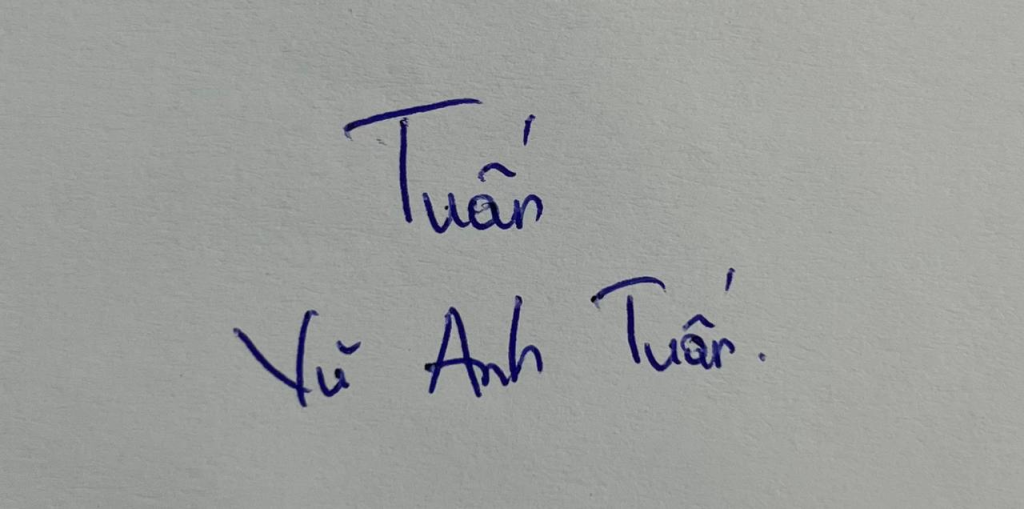 Tuấn
Vũ Anh Tuấn.